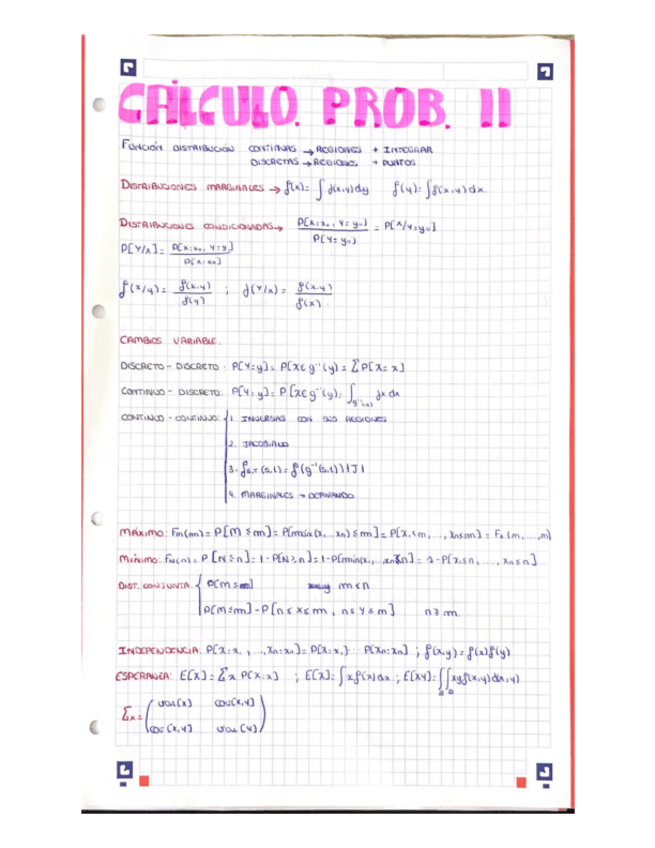 CÁLCULO. PROB. II
FUNCIÓN DISTRIBUCIÓN CONTINUAS → REGIONES + INTEGRAR
DISCRETAS → REGIONES + PUNTOS
DISTRIBUCIONES MARGINALES → f(x)= ∫ f(x,y)dy f(y)= ∫f(x,y)dx.
DISTRIBUCIONES CONDICIONADAS → P[X=x₀, Y=y₀] / P[Y=y₀] = P[X/Y=y₀]
P[Y/X]= P[X=x₀, Y=y] / P[X=x₀]
f(x/y)= f(x,y) / f(y) ; f(Y/x)= f(x,y) / f(x)
CAMBIOS VARIABLE.
DISCRETO - DISCRETO: P[Y=y]= P[X∈g⁻¹(y)= Σ P[X=x]
CONTINUO - DISCRETO: P[Y=y]= P[X∈g⁻¹(y)= ∫ fx dx
CONTINUO - CONTINUO: 1. INVERSAS CON SUS REGIONES
2. JACOBIANO
3. f s,T (s,t)= f(g⁻¹(s,t))|J|
4. MARGINALES →
MÁXIMO: Fm(m)= P[M≤m]= P[máx(x,...xn)≤m]= P[X,≤m, ..., Xn≤m] = Fx(m, ...,m)
MÍNIMO: FN(n)= P[N≤n]= 1-P[N>n]= 1-P[mín(x,..., xn)>n] = 1-P[X,≤n, ..., Xn≤n]
DIST. CONJUNTA: P[M≤m] m<n
P[M≤m]-P[n≤X≤m, n≤Y≤m] n≥m.
INDEPENDENCIA: P[X=x, ,..., Xn=xn]= P[X=x,]... P[Xn=xn] ; f(x,y)= f(x)f(y)
ESPERANZA: E[X]= Σx P[X=x] ; E[X]= ∫x f(x)dx ; E[XY]= ∬xyf(x,y)d(x,y)
Σx = var[X] cov[X,Y]
cov[X,Y] var[Y]